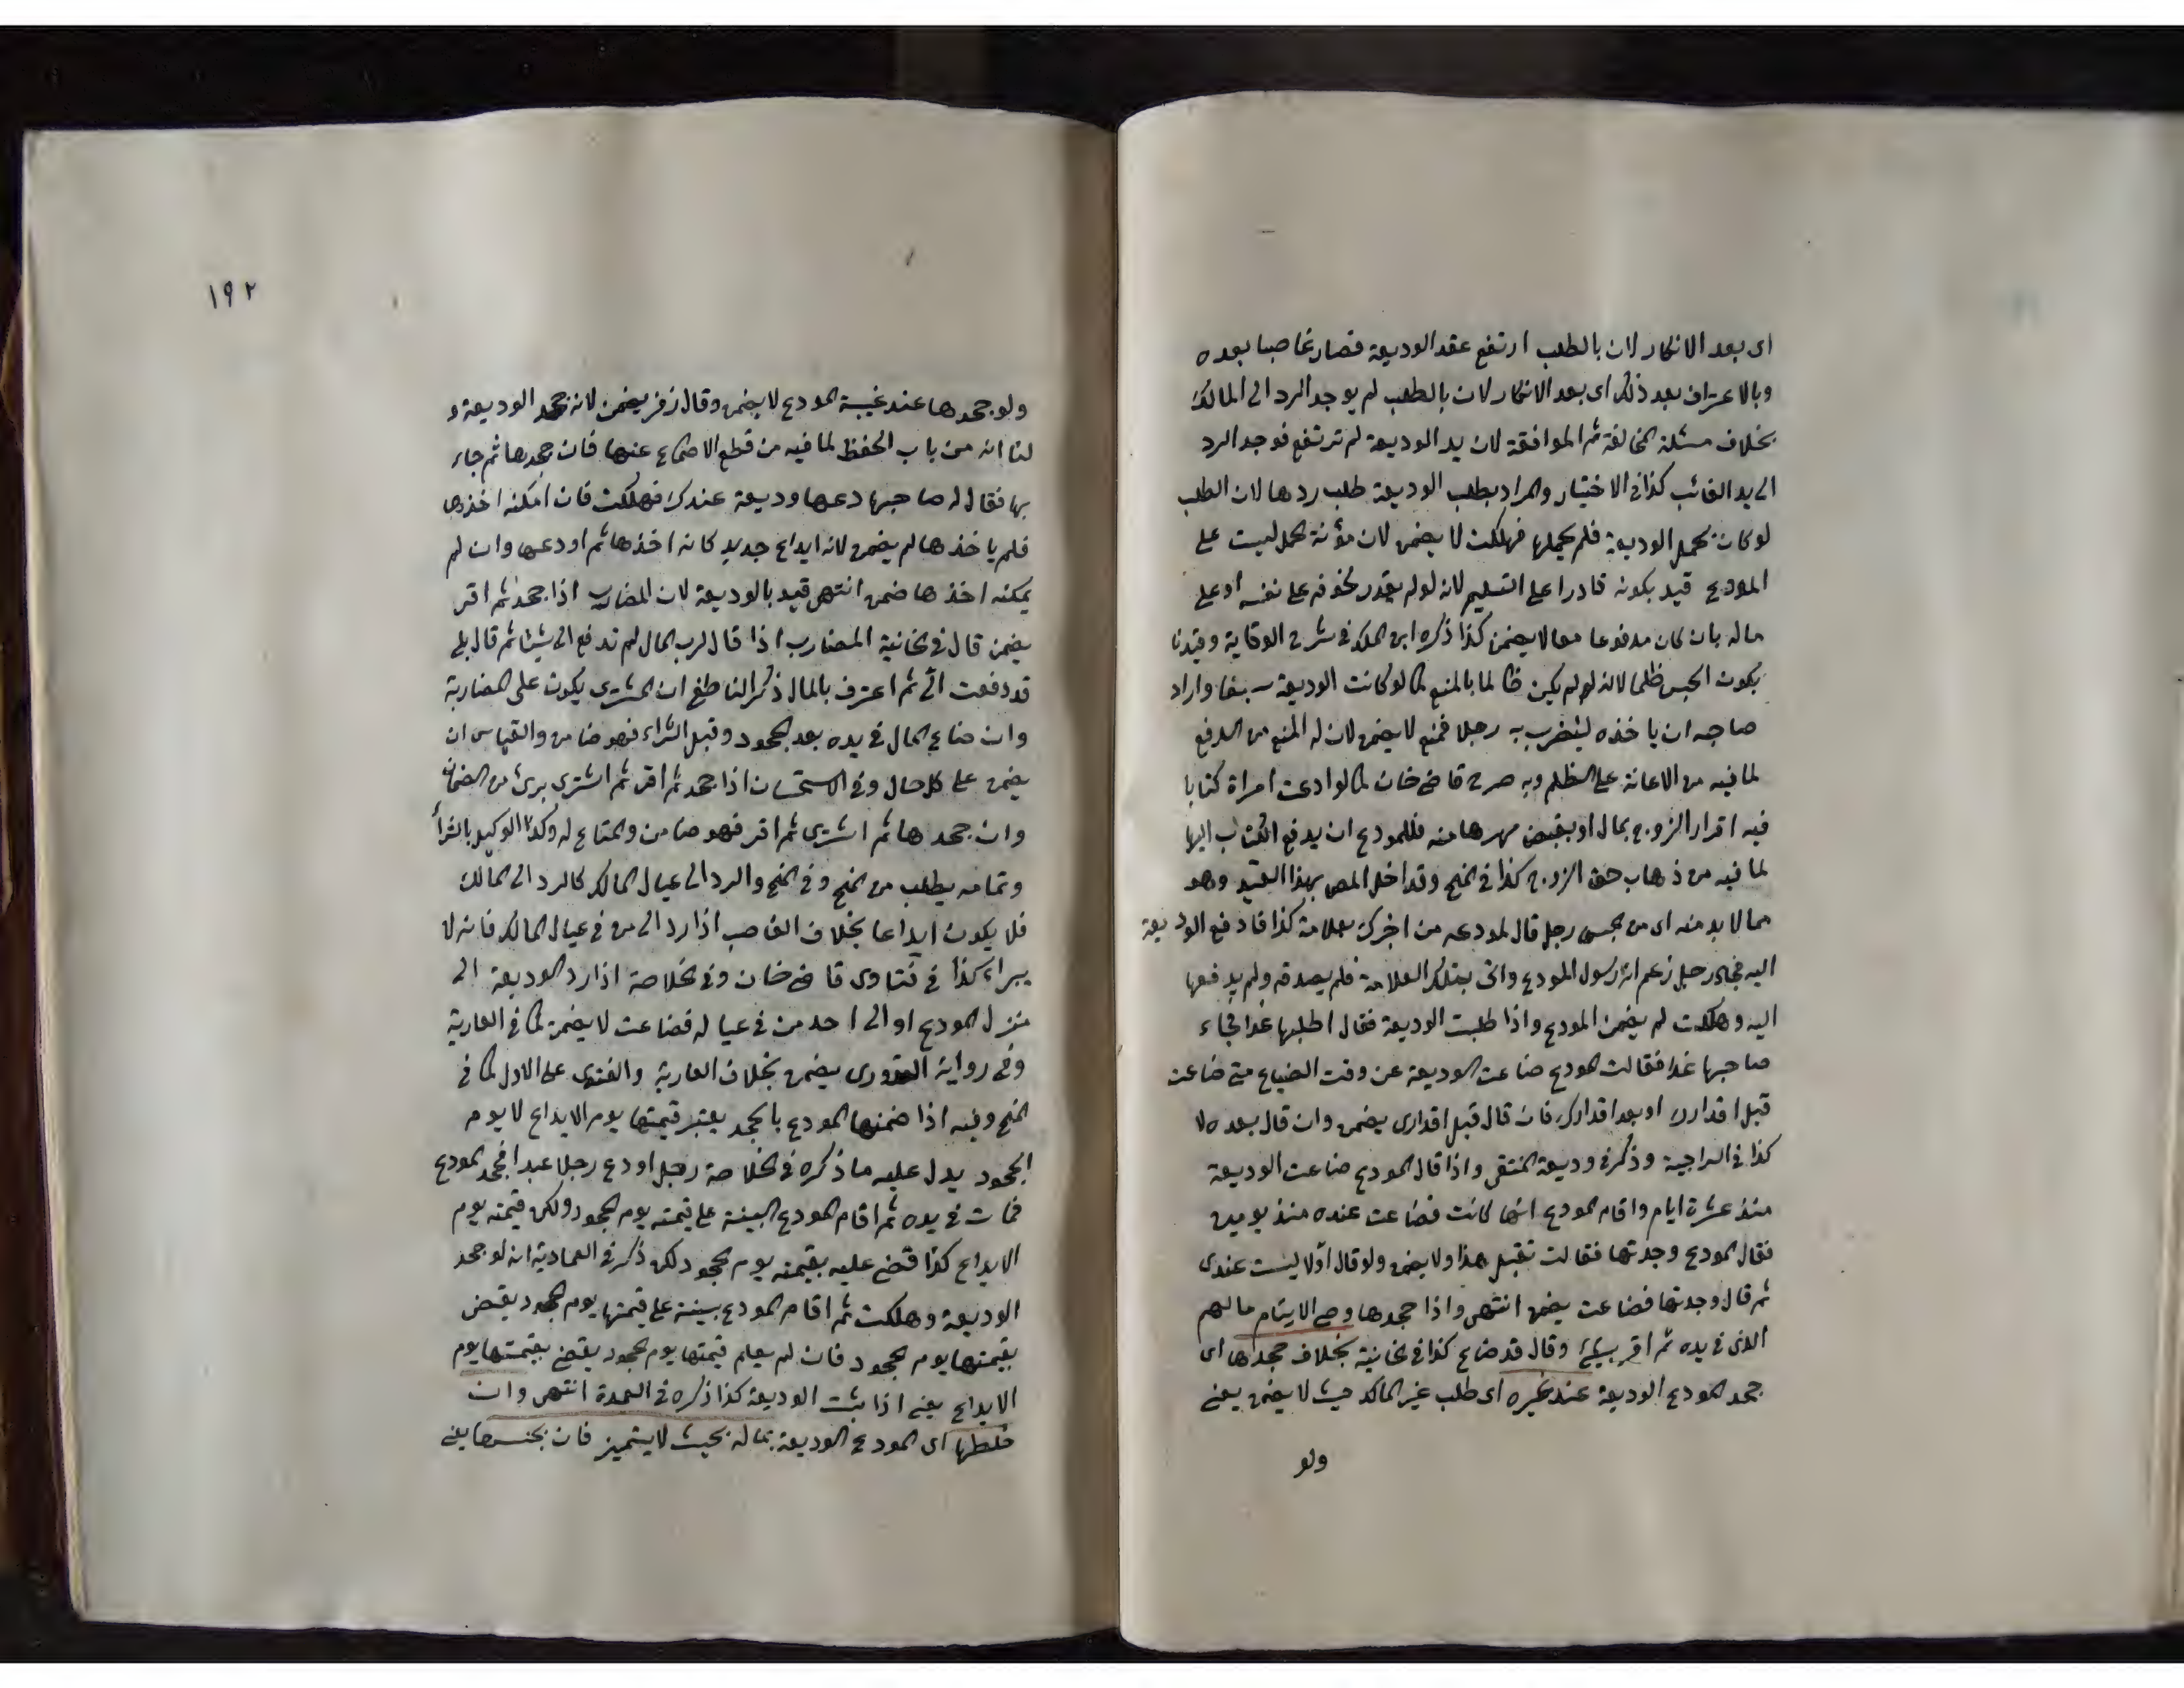 اى بعد الانكار لان بالطلب ارتفع عقد الوديعة فصار غاصبا بعده
وبالاعتراف بعد ذلك اى بعد الانكار لان بالطلب لم يوجد الرد الى المالك
بخلاف مسئلة المخالفة ثم الموافقة لان يد الوديعة لم ترتفع فوجد الرد
الى يد الغائب كذا فى الاختيار والمراد بطلب الوديعة طلب ردها لان الطلب
لو كان بحمل الوديعة فلم يحملها فهلكت لا يضمن لان مؤنة الحمل ليست على
المودع قيد بكونه قادرا على التسليم لانه لو لم يقدر لخوفه على نفسه او على
ماله بان كان مدفونا معا لا يضمن كذا ذكره ابن الملك فى شرح الوقاية وقيدنا
بكون الحبس ظلما لانه لو لم يكن ظالما بالمنع كما لو كانت الوديعة سيفا واراد
صاحبه ان ياخذه ليضرب به رجلا فمنع لا يضمن لان له المنع من الدفع
لما فيه من الاعانة على الظلم وبه صرح قاضى خان كما لو ادعت امراة كتابا
فيه اقرار الزوج بمال او بقبض مهرها منه فللمودع ان يدفع الكتاب اليها
لما فيه من ذهاب حق الزوج كذا فى المنح وقد اخل المص بهذا القيد وهو
مما لا بد منه اى من حبس رجل قال لمودعه من اخبرك بعلامة كذا فادفع الوديعة
اليه فجاء رجل زعم انه رسول المودع واتى بتلك العلامة فلم يصدقه ولم يدفعها
اليه وهلكت لم يضمن المودع واذا طلبت الوديعة فقال اطلبها غدا فجاء
صاحبها غدا فقالت المودع ضاعت الوديعة عن وقت الضياع متى ضاعت
قبل اقرارك او بعد اقرارك فان قال قبل اقرارى يضمن وان قال بعده لا
كذا فى السراجية وذكر فى وديعة المنتقى واذا قال المودع ضاعت الوديعة
منذ عشرة ايام واقام المودع انها كانت عنده منذ يومين
فقال المودع وجدتها فقالت تقبل هذا ولا يضمن ولو قال اولا ليست عندى
ثم قال وجدتها فضاعت يضمن انتهى واذا جحدها وصى الايتام مالهم
الذى فى يده ثم اقر بشئ وقال قد ضاع كذا فى الخانية بخلاف جحدها اى
جحد المودع الوديعة عند غيره اى طلب غير المالك حيث لا يضمن يعنى
ولو
١٩٢
ولو جحدها عند غيبة المودع لا يضمن وقال زفر يضمن لانه جحد الوديعة و
لنا انه من باب الحفظ لما فيه من قطع الاطماع عنها فان جحدها ثم جاء
بها فقال له صاحبها دعها وديعة عندك فهلكت فان امكنه اخذها
فلم ياخذها لم يضمن لانه ايداع جديد كانه اخذها ثم اودعها وان لم
يمكنه اخذها ضمن انتهى قيد بالوديعة لان المضارب اذا جحد ثم اقر
يضمن قال فى الخانية المضارب اذا قال لرب المال لم تدفع الى شيئا ثم قال بلى
قد دفعت الى ثم اعترف بالمال ذكر الناطفى ان المشترى يكون على المضاربة
وان ضاع المال فى يده بعد الجحود وقبل الشراء فهو ضامن والقياس ان
يضمن على كل حال وفى الاستحسان اذا جحد ثم اقر ثم اشترى برئ من الضمان
وان جحدها ثم اشترى ثم اقر فهو ضامن والمتاع له وكذا الوكيل بالشراء
وتمامه يطلب من المنح وفى المنح والرد الى عيال المالك كالرد الى المالك
فلا يكون ايداعا بخلاف الغاصب اذا رد الى من فى عيال المالك فانه لا
يبراء كذا فى فتاوى قاضى خان وفى الخلاصة اذا رد الوديعة الى
منزل المودع او الى احد من فى عياله فضاعت لا يضمن كما فى العارية
وفى رواية القدورى يضمن بخلاف العارية والفتوى على الاول كما فى
المنح وفيه اذا ضمنها المودع بالجحد يعتبر قيمتها يوم الايداع لا يوم
الجحود يدل عليه ما ذكره فى الخلاصة رجل اودع رجلا عبدا فجحد المودع
فمات فى يده ثم اقام المودع البينة على قيمته يوم الجحود ولكن قيمته يوم
الايداع كذا قضى عليه بقيمته يوم الجحود لكن ذكر فى العمادية انه لو جحد
الوديعة وهلكت ثم اقام المودع بينة على قيمتها يوم الجحود يقضى
بقيمتها يوم الجحود فان لم يعلم قيمتها يوم الجحود يقضى بقيمتها يوم
الايداع يعنى اذا بثت الوديعة كذا ذكره فى العمدة انتهى وان
خلطها اى المودع الوديعة بماله بحيث لا يتميز فان بجنسها يعنى